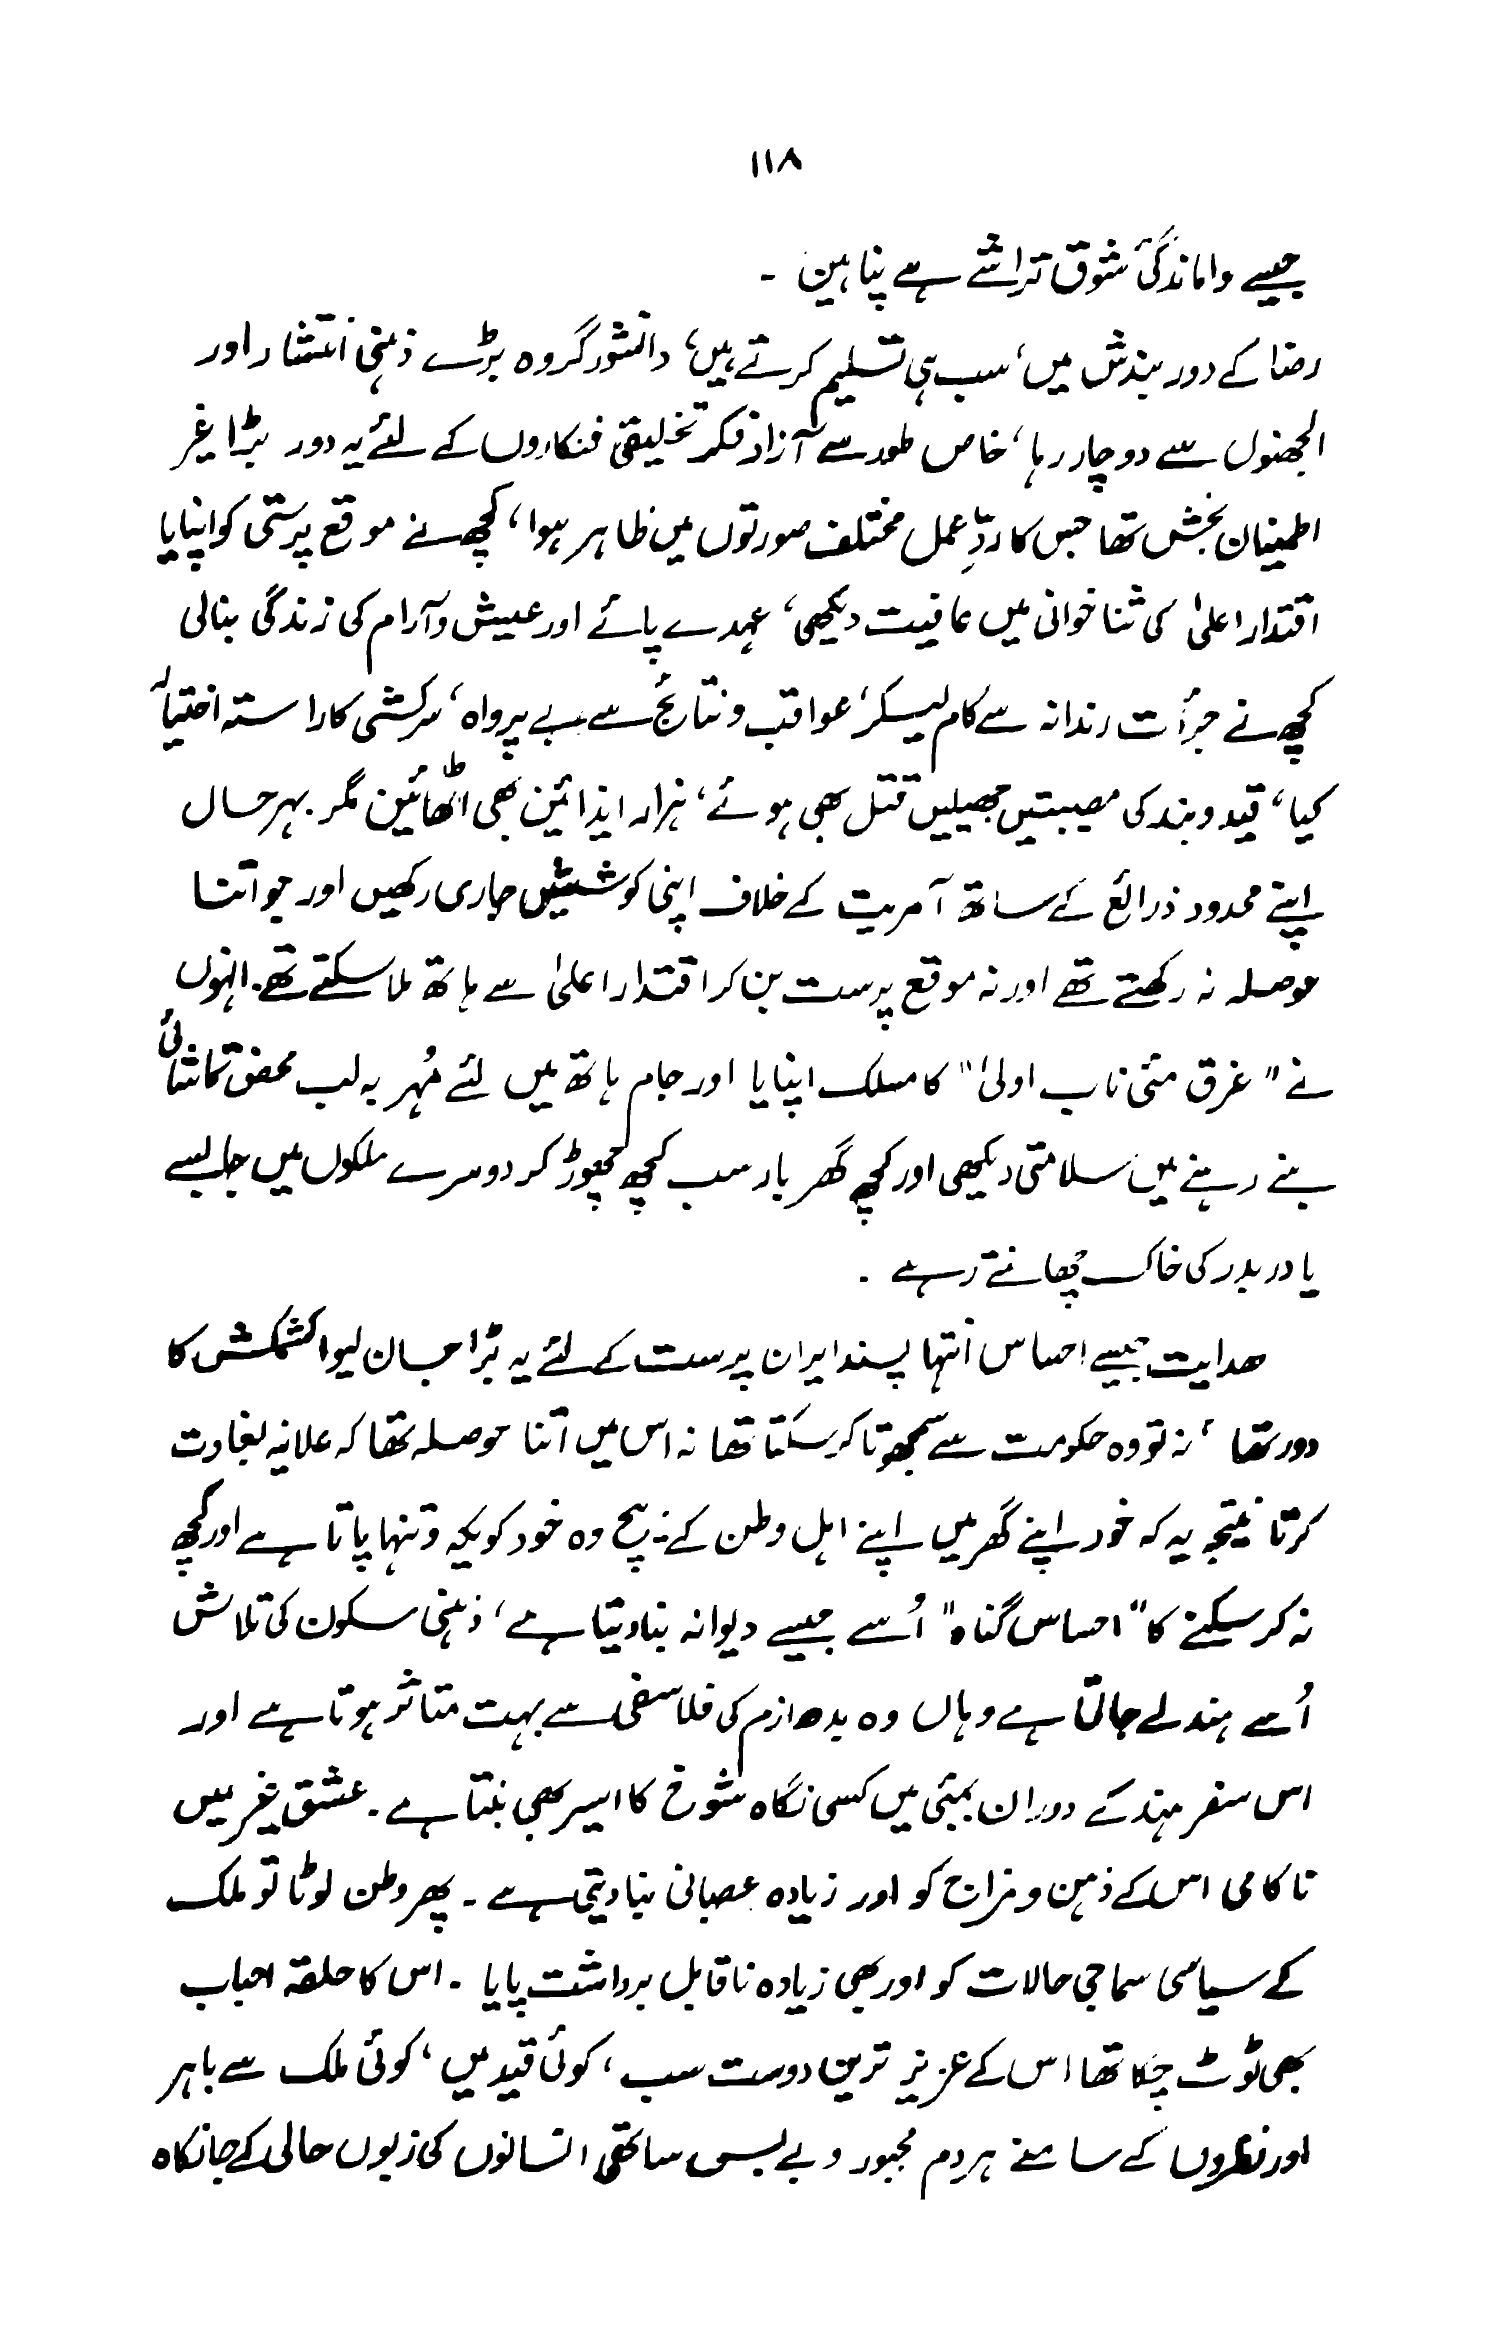 ۱۱۸
جیسے واماندگیٔ شوق تراشے ہے پناہیں ۔
رضا کے دور بندش میں، سب ہی تسلیم کرتے ہیں، دانشور گروہ بڑے ذہنی انتشار اور
الجھنوں سے دوچار رہا، خاص طور سے آزاد فکر تخلیقی فنکاروں کے لئے یہ دور بڑا غیر
اطمینان بخش تھا جس کا ردِّ عمل مختلف صورتوں میں ظاہر ہوا، کچھ نے موقع پرستی کو اپنایا
اقتدار اعلیٰ کی ثنا خوانی میں عافیت دیکھی، عہدے پائے اور عیش و آرام کی زندگی بنالی
کچھ نے جرأت رندانہ سے کام لیکر، عواقب و نتائج سے بے پرواہ، سرکشی کا راستہ اختیار
کیا، قید و بند کی مصیبتیں جھیلیں قتل بھی ہوئے، ہزار ایذائیں بھی اٹھائیں مگر بہر حال
اپنے محدود ذرائع کے ساتھ آمریت کے خلاف اپنی کوششیں جاری رکھیں اور جو اتنا
حوصلہ نہ رکھتے تھے اور نہ موقع پرست بن کر اقتدار اعلیٰ سے ہاتھ ملا سکتے تھے۔ انہوں
نے "غرق مئی ناب اولیٰ" کا مسلک اپنایا اور جام ہاتھ میں لئے مُہر بہ لب محض تماشائی
بنے رہنے میں سلامتی دیکھی اور کچھ گھر بار سب کچھ چھوڑ کر دوسرے ملکوں میں جا بسے
یا در بدر کی خاک چھانتے رہے ۔
ھدایت جیسے احساس انتہا پسند ایران پرست کے لئے یہ بڑا جان لیوا کشمکش کا
دور تھا، نہ تو وہ حکومت سے سمجھوتا کر سکتا تھا نہ اس میں اتنا حوصلہ تھا کہ علانیہ بغاوت
کرتا نتیجہ یہ کہ خود اپنے گھر میں اپنے اہل وطن کے بیچ وہ خود کو یکہ و تنہا پاتا ہے اور کچھ
نہ کر سکنے کا "احساس گناہ" اُسے جیسے دیوانہ بنا دیتا ہے، ذہنی سکون کی تلاش
اُسے ہند لے جاتی ہے وہاں وہ بدھ ازم کی فلاسفی سے بہت متاثر ہوتا ہے اور
اس سفر ہند کے دوران بمبئی میں کسی نگاہ شوخ کا اسیر بھی بنتا ہے ۔ عشق غیر میں
ناکامی اس کے ذہن و مزاج کو اور زیادہ عصبانی بنا دیتی ہے ۔ پھر وطن لوٹا تو ملک
کے سیاسی سماجی حالات کو اور بھی زیادہ ناقابل برداشت پایا ۔ اس کا حلقہ احباب
بھی ٹوٹ چکا تھا اس کے عزیز ترین دوست سب، کوئی قید میں، کوئی ملک سے باہر
اور نظروں کے سامنے ہر دم مجبور و بے بس ساتھی انسانوں کی زبوں حالی کے جانکاہ